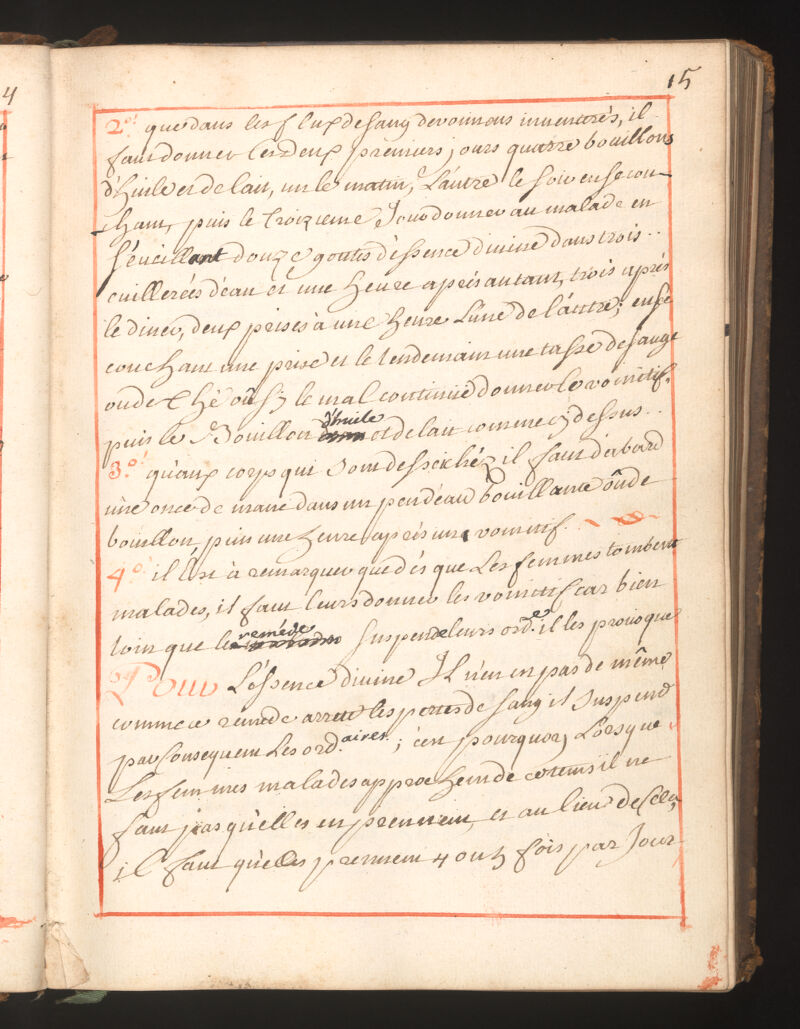 15
2.° que dans les flux de sang devoimons inveterés, il
faut donner les deux premiers jours quatre bouillons
d'huile et de lait, un le matin, L'autre le soir en se cou-
chant, puis le troizieme Jour donner au malade en
s'éveillant douze goutes d'éssence divine dans trois..
cuillerées d'eau et une heure aprés autant, trois aprés
le diner, deux prises à une heure L'une de l'autre; en se
couchant une prise et le lendemain une tasse de sauge
ou de Thé où si le mal continuë donner le vomitif.
puis le Bouillon d'huile et de lait comme cy dessus..
3.° qu'aux corps qui sont dessechéz il faut d'abord
une once de mane dans un peu d'eau bouillante où de
bouillon, puis une heure aprés un vomitif.
4.° il Est à remarquer que dés que Les femmes tombent
malades, il faut leurs donner les vomitif car bien
loin que le remede suspende leurs ord.es il les provoque
Pour L'éssence divine Il n'en en pas de même
comme ce remede arrette les pertes de sang il suspend
par Consequent Les ord.aires; c'en pourquoy Lorsque
Les femmes malades approchem de cetems il ne
faut pas qu'elles en prennent, et au lieu de Cela,
il faut qu'elles prennent 4 ou 5 fois par Jour